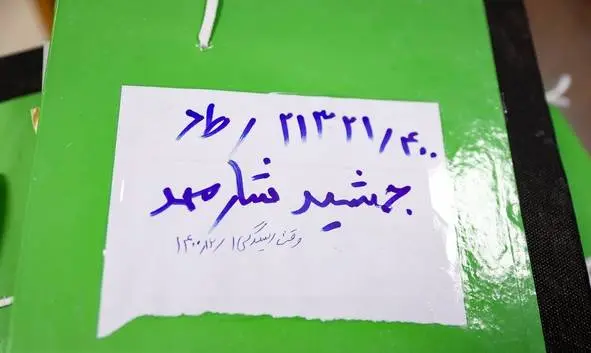 ۴۰۰/۲۱۳۲۱/ط د
جمشید شارمهد
وقت رسیدگی ۱۴۰۰/۱۲/۱